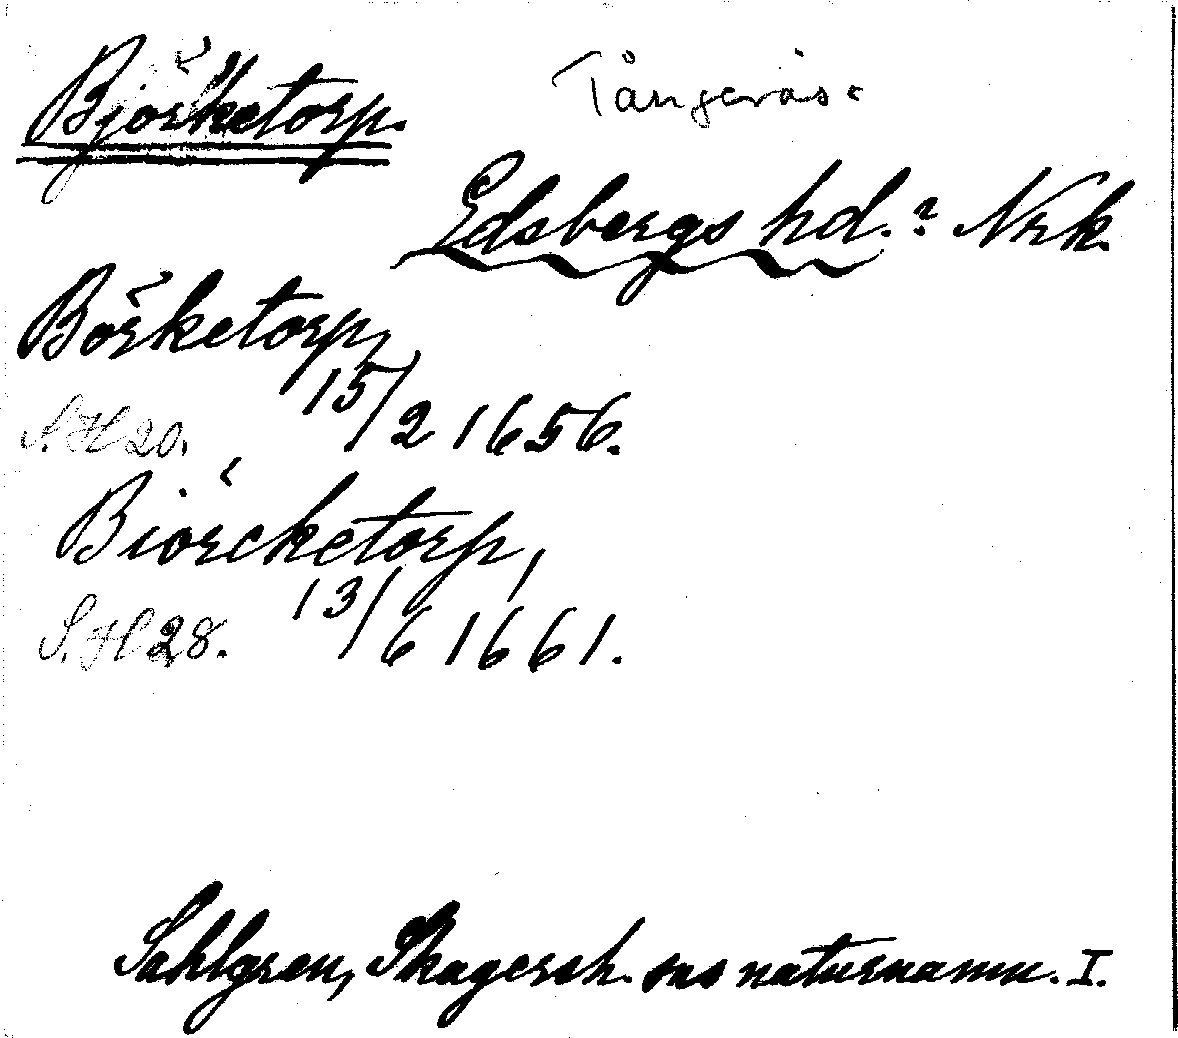 Björketorp. Tångerås.
Edsbergs hd.? Nrk.
Börketorp,
S.H 20. 15/2 1656.
Biörcketorp,
S.H 28. 13/6 1661.
Sahlgren, Skagersh. sns naturnamn. I.